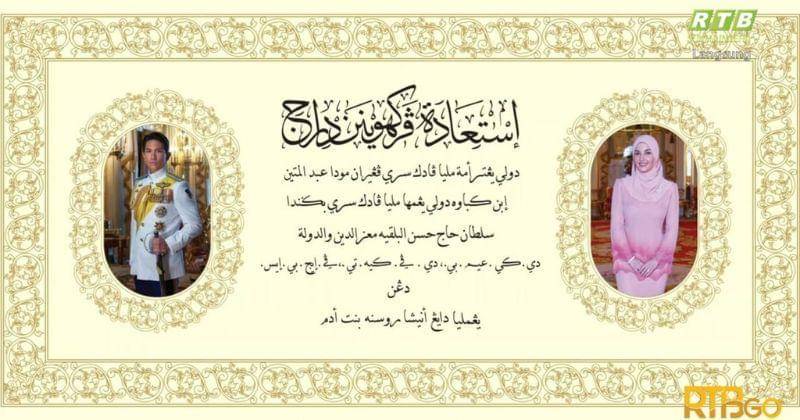 RTB
Langsung
إستعادة ڤركهوينن دراج
دولي يڠتر أمة مليا ڤادك سري ڤڠيران مودا عبد المتين
إبن كباوه دولي يڠمها مليا ڤادك سري بݢندا
سلطان حاج حسن البلقيه معز الدين والدولة
دي.كي.عيم.بي.،دي.ڤي.كيه.تي.،ڤي.إيج.بي.إيس.
دڠن
يڠمليا دايڠ أنيشا روسنه بنت أدم
RTBGO